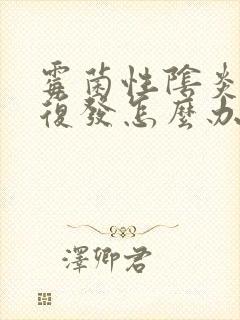 霉菌性陰炎
復發怎麼办
澤卿君